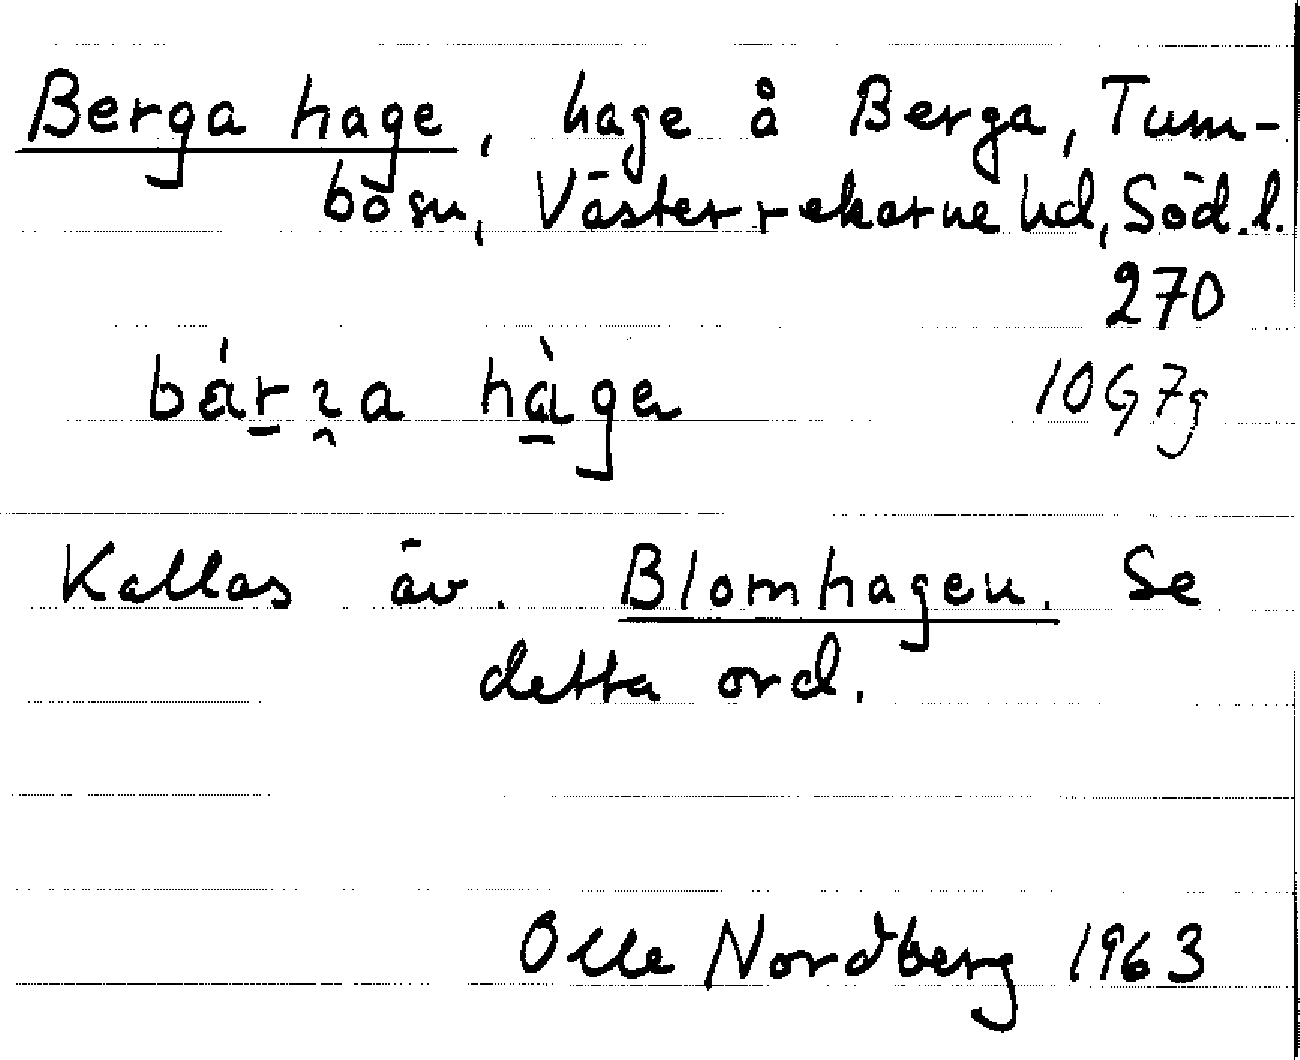 Berga hage, hage å Berga, Tum-
bosn, Västerrekarne hd, Söd.l.
270
10G7g
Kallas äv. Blomhagen. Se
detta ord.
Olle Nordberg 1963